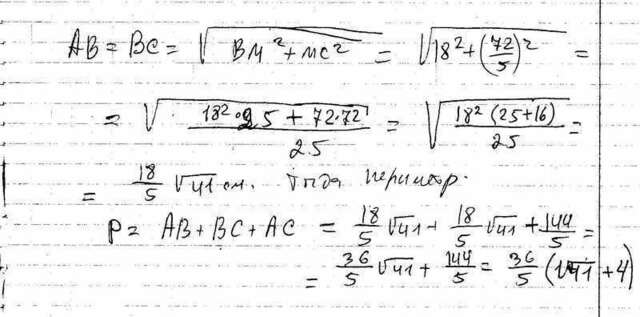 AB = BC = √(BM² + MC²) = √(18² + (72/5)²) =
= √((18²·25 + 72·72)/25) = √((18²(25+16))/25) =
= 18/5 √41 см. Тогда периметр.
P = AB + BC + AC = 18/5 √41 + 18/5 √41 + 144/5 =
= 36/5 √41 + 144/5 = 36/5 (√41 + 4)